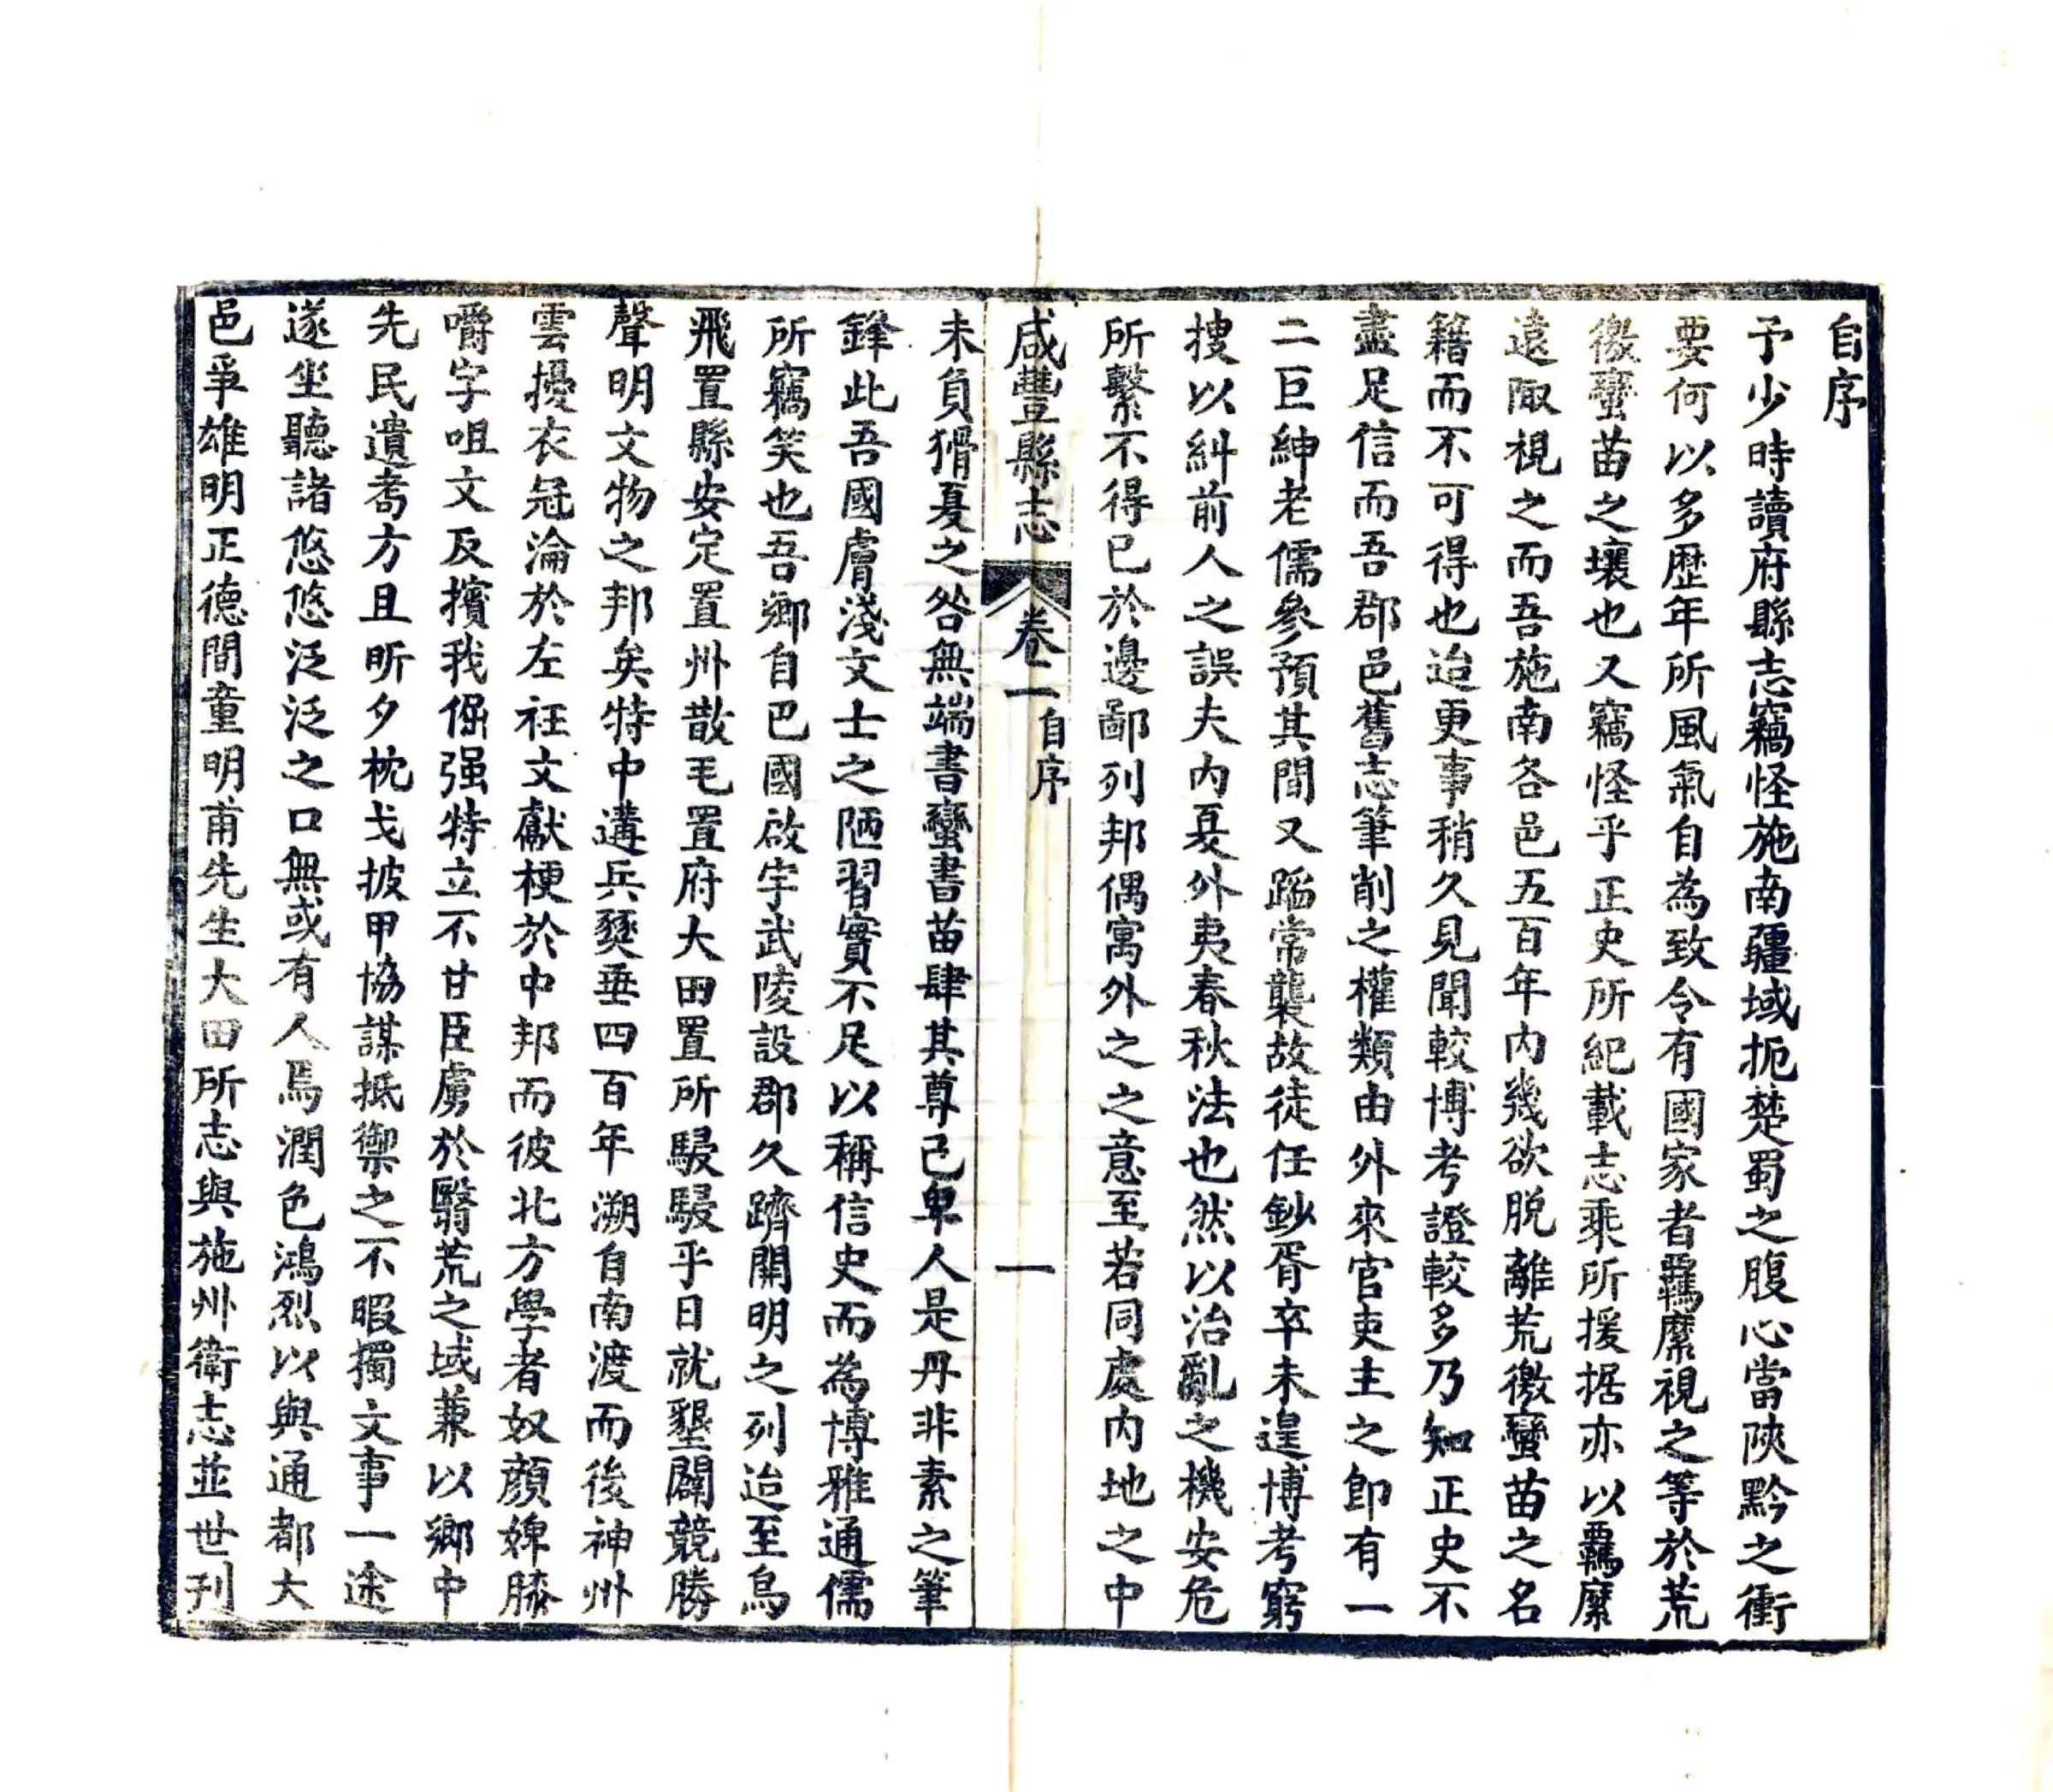 自序
予少時讀府縣志竊怪施南疆域扼楚蜀之腹心當陝黔之衝
要何以多歷年所風氣自為致令有國家者羈縻視之等於荒
徼蠻苗之壤也又竊怪乎正史所紀載志乘所援据亦以羈縻
遠陬視之而吾施南各邑五百年內幾欲脫離荒徼蠻苗之名
籍而不可得也迨更事稍久見聞較博考證較多乃知正史不
盡足信而吾郡邑舊志筆削之權類由外來官吏主之即有一
二巨紳老儒參預其間又蹈常襲故徒任鈔胥卒未遑博考窮
搜以糾前人之誤夫內夏外夷春秋法也然以治亂之機安危
所繫不得已於邊鄙列邦偶寓外之之意至若同處內地之中
咸豐縣志 卷一 自序 一
未負猾夏之咎無端書蠻書苗肆其尊己卑人是丹非素之筆
鋒此吾國膚淺文士之陋習實不足以稱信史而為博雅通儒
所竊笑也吾鄉自巴國啟宇武陵設郡久躋開明之列迨至烏
飛置縣安定置州散毛置府大田置所駸駸乎日就墾闢競勝
聲明文物之邦矣特中遘兵燹垂四百年溯自南渡而後神州
雲擾衣冠淪於左衽文獻梗於中邦而彼北方學者奴顏婢膝
嚼字咀文反擯我倔强特立不甘臣虜於翳荒之域兼以鄉中
先民遺耆方且昕夕枕戈披甲協謀抵禦之不暇獨文事一途
遂坐聽諸悠悠泛泛之口無或有人焉潤色鴻烈以與通都大
邑爭雄明正德間童明甫先生大田所志與施州衛志並世刊